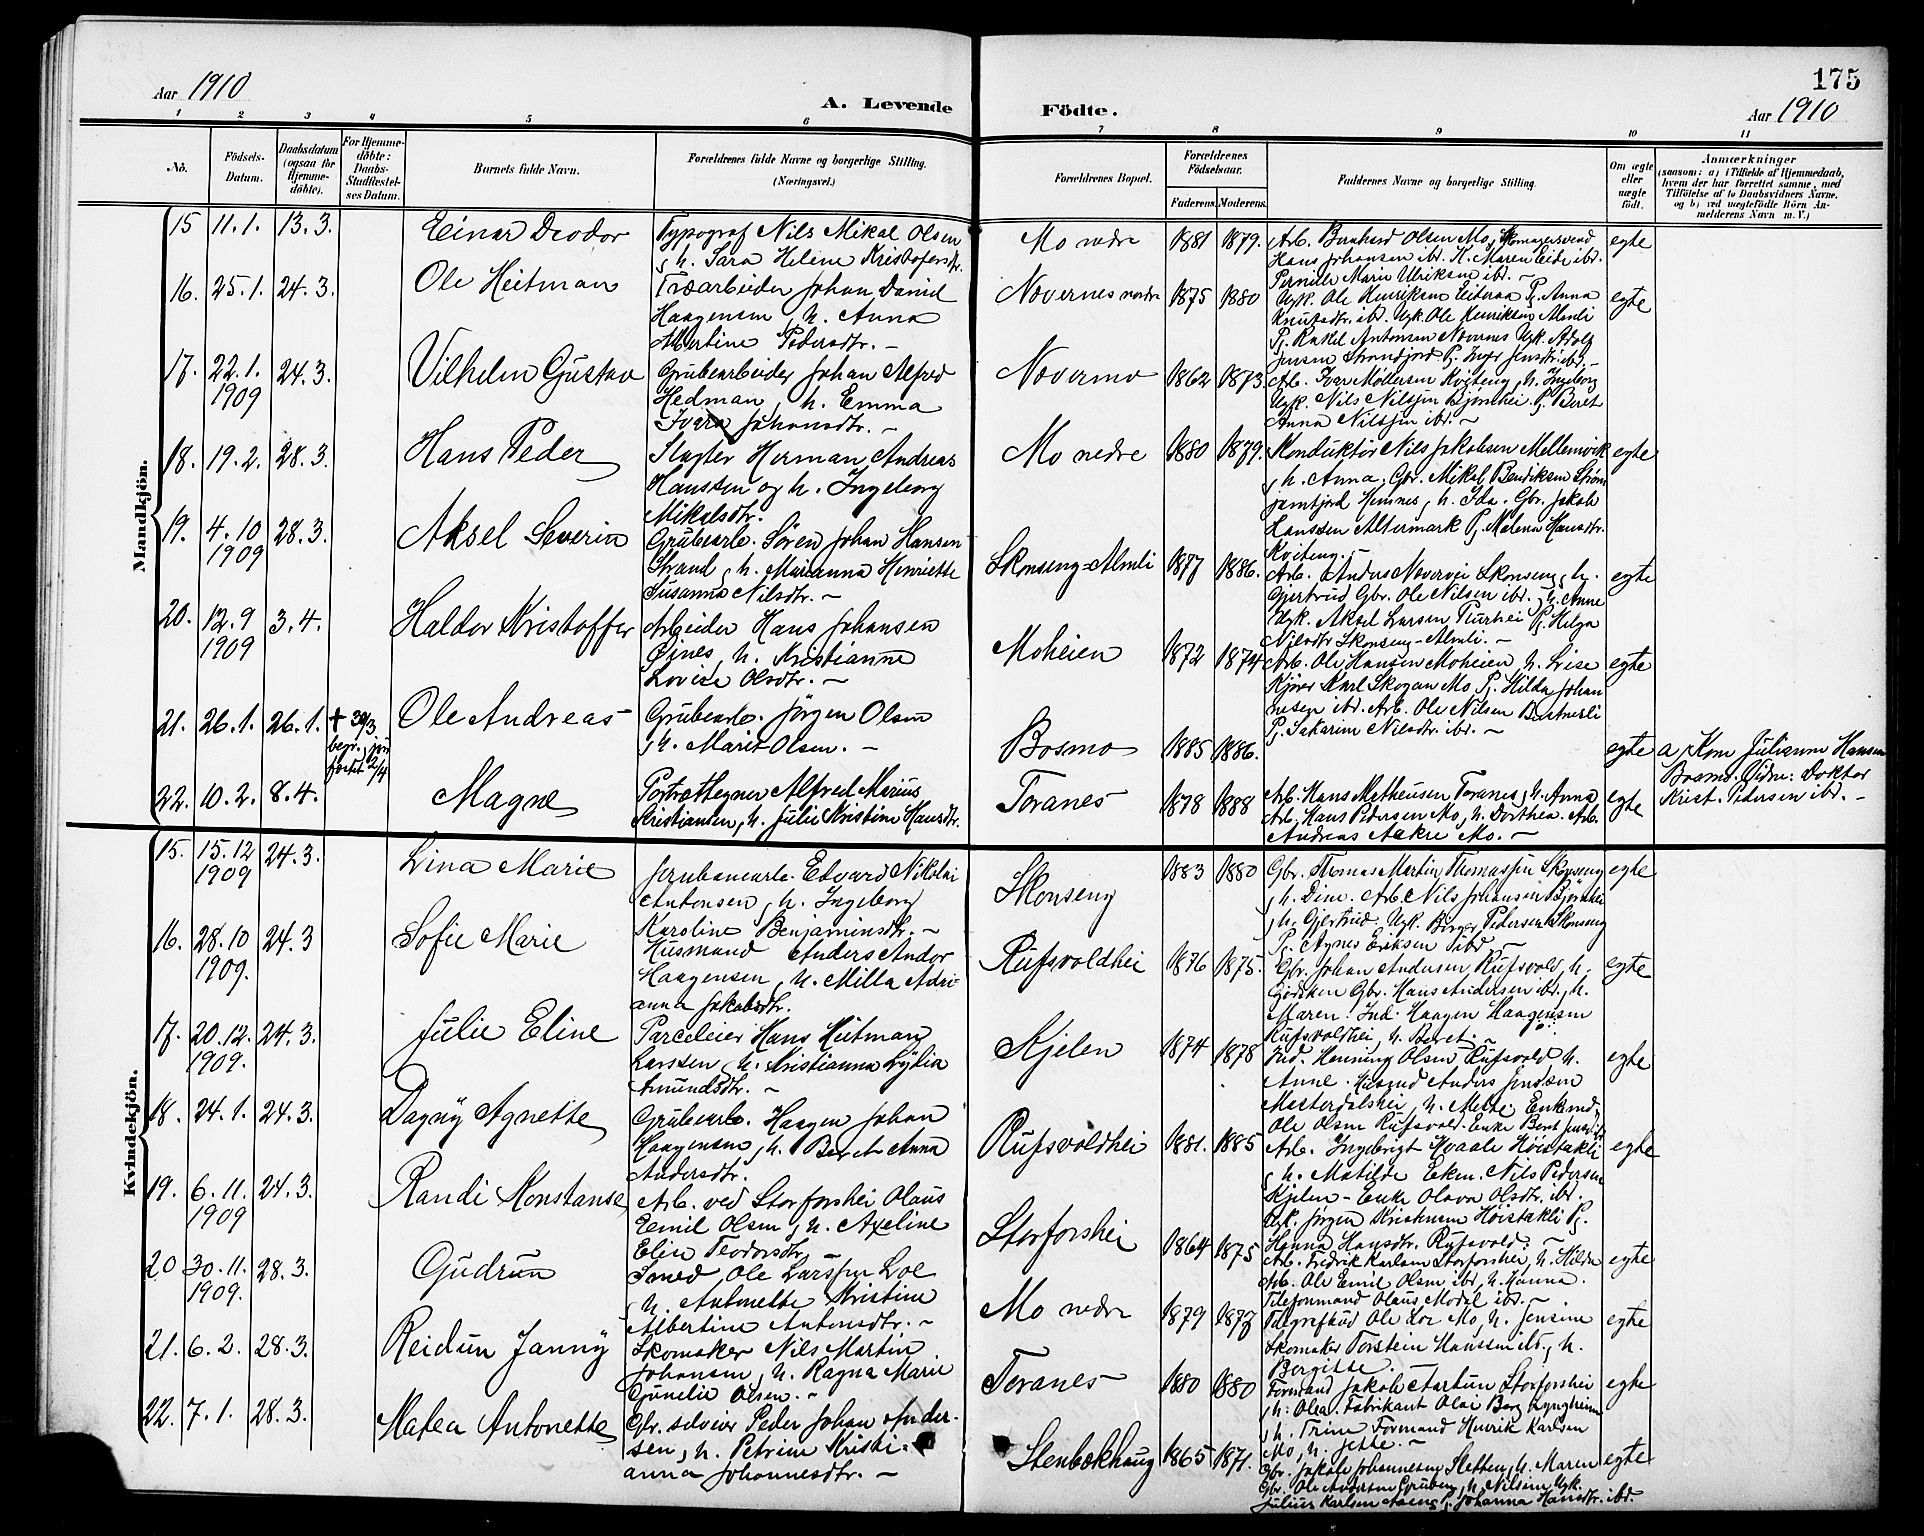 175
Aar 1910
A. Levende Födte.
Aar 1910
1 2 3 4 5 6 7 8 9 10 11
No.
Födsels-Datum.
Daabsdatum (ogsaa for Hjemmedöbte).
For Hjemmedöbte: Daabs-Stadfæstelses Datum.
Barnets fulde Navn.
Forældrenes fulde Navne og borgerlige Stilling.
(Næringsvei.)
Forældrenes Bopæl.
Forældrenes Födselsaar.
Faderens. Moderens.
Faddernes Navne og borgerlige Stilling.
Om ægte eller uægte födt.
Anmærkninger
(saasom: a) i Tilfælde af Hjemmedaab, hvem der har forrettet samme, med Tilföielse af to Daabsvidners Navne, og b) ved uægtefödte Börn Anmelderens Navn m. V.)
Mandkjön.
15 11.1. 13.3. Einar Deodor
Typograf Nils Mikal Olsen
, h. Sara Helene Kristofersdtr.
Mo nedre 1881 1879.
Arb. Bernhard Olsen Mo, Skomagersvend
Hans Johansen ibd. K. Maren Eide ibd.
Pernille Marie Ulriksen ibd. –
egte
16. 25.1. 24.3. Ole Heitman
Træarbeider Johan Daniel
Haagensen, h. Anna
Martine Pedersdtr. –
Nævernes nedre 1875 1880
Ugk. Ole Henriksen Eiteraa Pj. Anna
Knutsdtr. ibd. Ugk. Ole Henriksen Almli
Pj. Rakel Antonsen Nævernes Ugk. Adolf
Jensen Strandjord Pj. Inger Jensdtr. ibd. –
egte
17. 22.1. 1909 24.3. Vilhelm Gustav
Grubearbeider Johan Alfred
Hedman, h. Emma
Ivara Johansdtr. –
Nævermo 1862 1873.
Arb. Ivar Möllersen Kviteng, h. Ingeborg
Ugk. Nils Nilssen Bjørnhei. Pj. Beret
Anna Nilssen ibd. –
egte
18. 19.2. 28.3. Hans Peder
Slagter Herman Andreas
Hanssen og h. Ingeborg
Mikalsdtr.
Mo nedre 1880 1879.
Konduktør Nils Jakobsen Mellemvik
, h. Anna. Gbr. Mikal Bendiksen Strøm
Hemnes, h. Ida. Gbr. Jakob
Hanssen Altermark Pj. Malena Hansdtr.
Kviteng. –
egte
19. 4.10 1909 28.3. Aksel Severin
Grubearb. Sören Johan Hansen
Strand, h. Marianna Henriette
Susanna Nilsdtr. –
Skonseng-Almli 1877 1886.
Arb. Anders Nævervei Skonseng, h.
Gjertrud Gbr. Ole Nilsen ibd. h. Anne
Ugk. Aksel Larsen Pj. Helga
Nilsdtr. Skonseng-Almli. –
egte
20. 12.9 1909 3.4. Haldor Kristoffer
Arbeider Hans Johansen
Øjnes, h. Kristianne
Lovise Olsdtr. –
Moheien 1872 1874
Arb. Ole Hansen Moheien h. Lise
Karl Skogan Mo Pj. Hilda Johan
nesen ibd. Arb. Ole Nilsen
Pj. Sakarine Nilsdtr. ibd. –
egte
21. 26.1. 26.1. † 30/3 begr. 2/4
Ole Andreas
Grubearb. Jörgen Olsen
, h. Marit Olsen. –
Bosmo 1885 1886.
egte
a, Kom Julianne Hansen
Bosmo. Vidne: Doktor
Krist. Pedersen ibd. –
22. 10.2. 8.4. Magne
Portrættegner Alfred Marius
Kristiansen, h. Julie Kristine Hansdtr.
Toranes 1878 1888
Arb. Hans Matheusen Toranes, h. Anna
Arb. Hans Pedersen Mo, h. Dorthea. Arb.
Andreas Aakre Mo. –
egte
Kvindekjön.
15. 15.12 1909 24.3. Lina Marie
Jernbanearb. Edvard Nikolai
Antonsen, h. Ingeborg
Karoline Benjaminsdtr. –
Skonseng 1883 1880
Gbr. Thomas Martin Thomassen Skonseng
, h. Dine. Arb. Nils Johansen Bjørnhei
, h. Gjertrud. Ugk. Birger Pedersen Skonseng
Pj. Agnes Eriksen ibd. –
egte
16. 28.10 1909. 24.3 Sofie Marie
Husmand Anders Andor
Haagensen, h. Milla Adri-
anna Jakobsdtr.
Rufsvoldhei 1876 1875.
Gbr. Johan Andersen Rufsvold, h.
Gjertken Gbr. Hans Andersen ibd., h.
Maren. Ind. Haagen Haagensen
Rufsvoldhei, h. Beret. –
egte
17. 20.12. 1909. 24.3. Julie Eline
Parceleier Hans Heitman
Larssen, h. Kristianna Lydia
Amundsdtr. –
Kjelen 1874 1878
Ind. Henning Olsen Rufsvold h.
Anne. Husmd Anders Jensen
Mesterdalshei, h. Mette. Enkemd
Ole Olsen Rufsvold. Enke Beret
egte
18. 24.1. 24.3. Dagny Agnette
Grubearb. Haagen Johan
Haagensen, h. Beret Anna
Andersdtr.
Rufsvoldhei 1881. 1885
Arb. Ingebrigt Hvaale Høistakli
, h. Matilde Ekm. Nils Pedersen
Kjelen – Enke Olava Olsdtr. ibd.
Ugk. Jörgen Kristensen Høistakli Pj.
Hanna Hansdtr. Rufsvold. –
egte
19. 6.11. 1909 24.3. Randi Konstanse
Arb. ved Storforshei Olaus
Emil Olsen, h. Axeline
Elise Teodorsdtr. –
Storforshei 1864 1875
Arb. Fredrik Karlsen Storforshei, h. Hilda
Arb. Ole Emil Olsen ibd, h. Hanna.
Telefonmand Olaus Modal ibd. –
egte
20 30.11. 1909. 28.3. Gudrun
Smed Ole Larssen Loe
, h. Antonette Kristine
Albertine Antonsdtr. –
Mo nedre 1879 1877
Telegrafbud Ole Loe Mo, h. Jensine
Skomaker Torstein Hanssen ibd, h.
Bergitte.
egte
21. 6.2. 28.3. Reidun Janny
Skomaker Nils Martin
Johansen, h. Ragna Marie
Gunelie Olsen. –
Toranes 1880 1880
Formand Jakob Aartun Storforshei
, h. Olea. Fabrikant Olai Berg Lyngheim
, h. Trine Formand Henrik Karlsen
Mo, h. Jette. –
egte
22. 7.1. 28.3. Matea Antonette
Gbr. selveier Peder Johan Ander-
sen, h. Petrine Kristi-
anna Johannesdtr. –
Stenbækhaug 1865 1871.
Gbr. Jakob Johannesen Sletten, h. Maren
Gbr. Ole Andersen Gruben, h. Nilsine Ugk.
Julius Karlsen Pj. Johanna Hansdtr. ibd.
egte